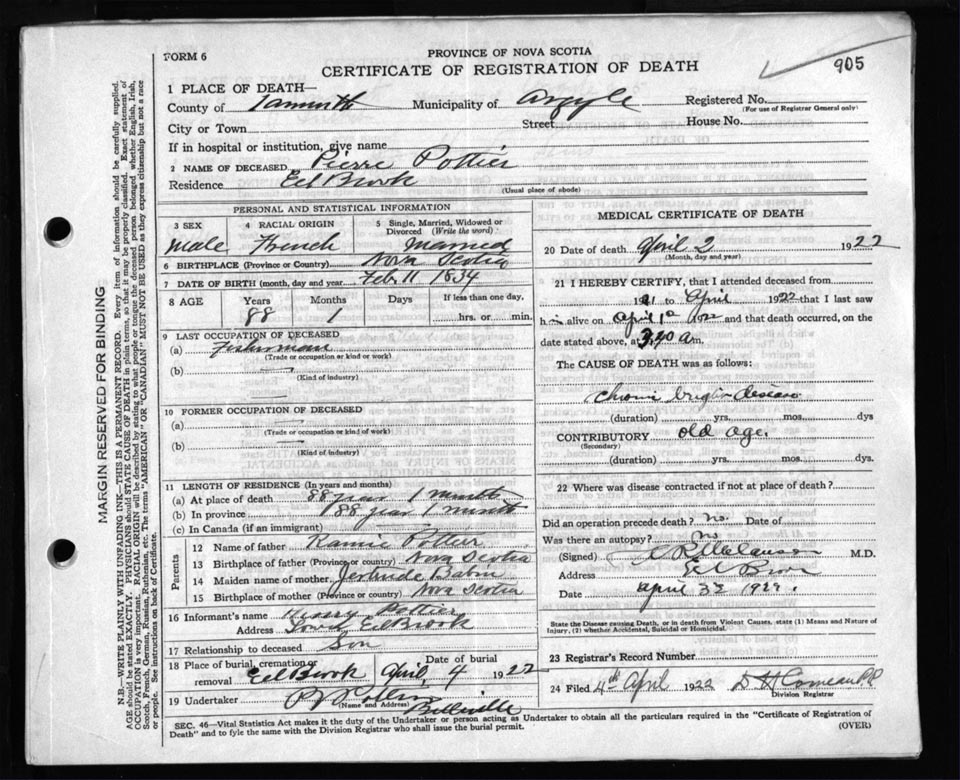 FORM 6
PROVINCE OF NOVA SCOTIA
CERTIFICATE OF REGISTRATION OF DEATH
905
1 PLACE OF DEATH—
County of Municipality of Argyle Registered No.
(For use of Registrar General only)
City or Town Street House No.
If in hospital or institution, give name
2 NAME OF DECEASED Pierre Pottier
Residence Eel Brook
(Usual place of abode)
PERSONAL AND STATISTICAL INFORMATION
3 SEX 4 RACIAL ORIGIN 5 Single, Married, Widowed or Divorced (Write the word)
Male French Married
6 BIRTHPLACE (Province or Country) Nova Scotia
7 DATE OF BIRTH (month, day and year) Feb. 11 1834
8 AGE Years Months Days If less than one day,
88 1 hrs. or min.
9 LAST OCCUPATION OF DECEASED
(a) Fisherman
(Trade or occupation or kind or work)
(b)
(Kind of industry)
10 FORMER OCCUPATION OF DECEASED
(a)
(Trade or occupation or kind or work)
(b)
(Kind of industry)
11 LENGTH OF RESIDENCE (In years and months)
(a) At place of death 88 year 1 month
(b) In province 88 year 1 month
(c) In Canada (if an immigrant)
Parents
12 Name of father Pottier
13 Birthplace of father (Province or country) Nova Scotia
14 Maiden name of mother Gertrude Babin
15 Birthplace of mother (Province or country) Nova Scotia
16 Informant's name Henry Pottier
Address South Eel Brook
17 Relationship to deceased Son
18 Place of burial, cremation or removal Eel Brook Date of burial April 4 1922
19 Undertaker
(Name and Address) Belleville
MEDICAL CERTIFICATE OF DEATH
20 Date of death April 2 1922
(Month, day and year)
21 I HEREBY CERTIFY, that I attended deceased from
1921 to April 1922 that I last saw
him alive on April 1st 1922 and that death occurred, on the
date stated above, at 3.40 a.m.
The CAUSE OF DEATH was as follows:
chronic bright disease
(duration) yrs. mos. dys
CONTRIBUTORY old age.
(Secondary)
(duration) yrs. mos. dys.
22 Where was disease contracted if not at place of death?
Did an operation precede death? no. Date of
Was there an autopsy? no
(Signed) M.D.
Address Eel Brook
Date April 1922.
State the Disease causing Death, or in death from Violent Causes, state (1) Means and Nature of
Injury, (2) whether Accidental, Suicidal or Homicidal.
23 Registrar's Record Number
24 Filed 4th April 1922 D H Comeau
Division Registrar
SEC. 46—Vital Statistics Act makes it the duty of the Undertaker or person acting as Undertaker to obtain all the particulars required in the "Certificate of Registration of
Death" and to fyle the same with the Division Registrar who shall issue the burial permit. (OVER)
MARGIN RESERVED FOR BINDING
N.B.—WRITE PLAINLY WITH UNFADING INK—THIS IS A PERMANENT RECORD. Every item of information should be carefully supplied.
AGE should be stated EXACTLY. PHYSICIANS should STATE CAUSE OF DEATH in plain terms, so that it may be properly classified. Exact statement of
OCCUPATION is very important. RACIAL ORIGIN will be described by stating to what people or tongue the deceased person belonged whether English, Irish,
Scotch, French, German, Russian, Ruthenian, etc. The terms "AMERICAN" OR "CANADIAN" MUST NOT BE USED as they express citizenship but not a race
or people. See instructions on back of Certificate.